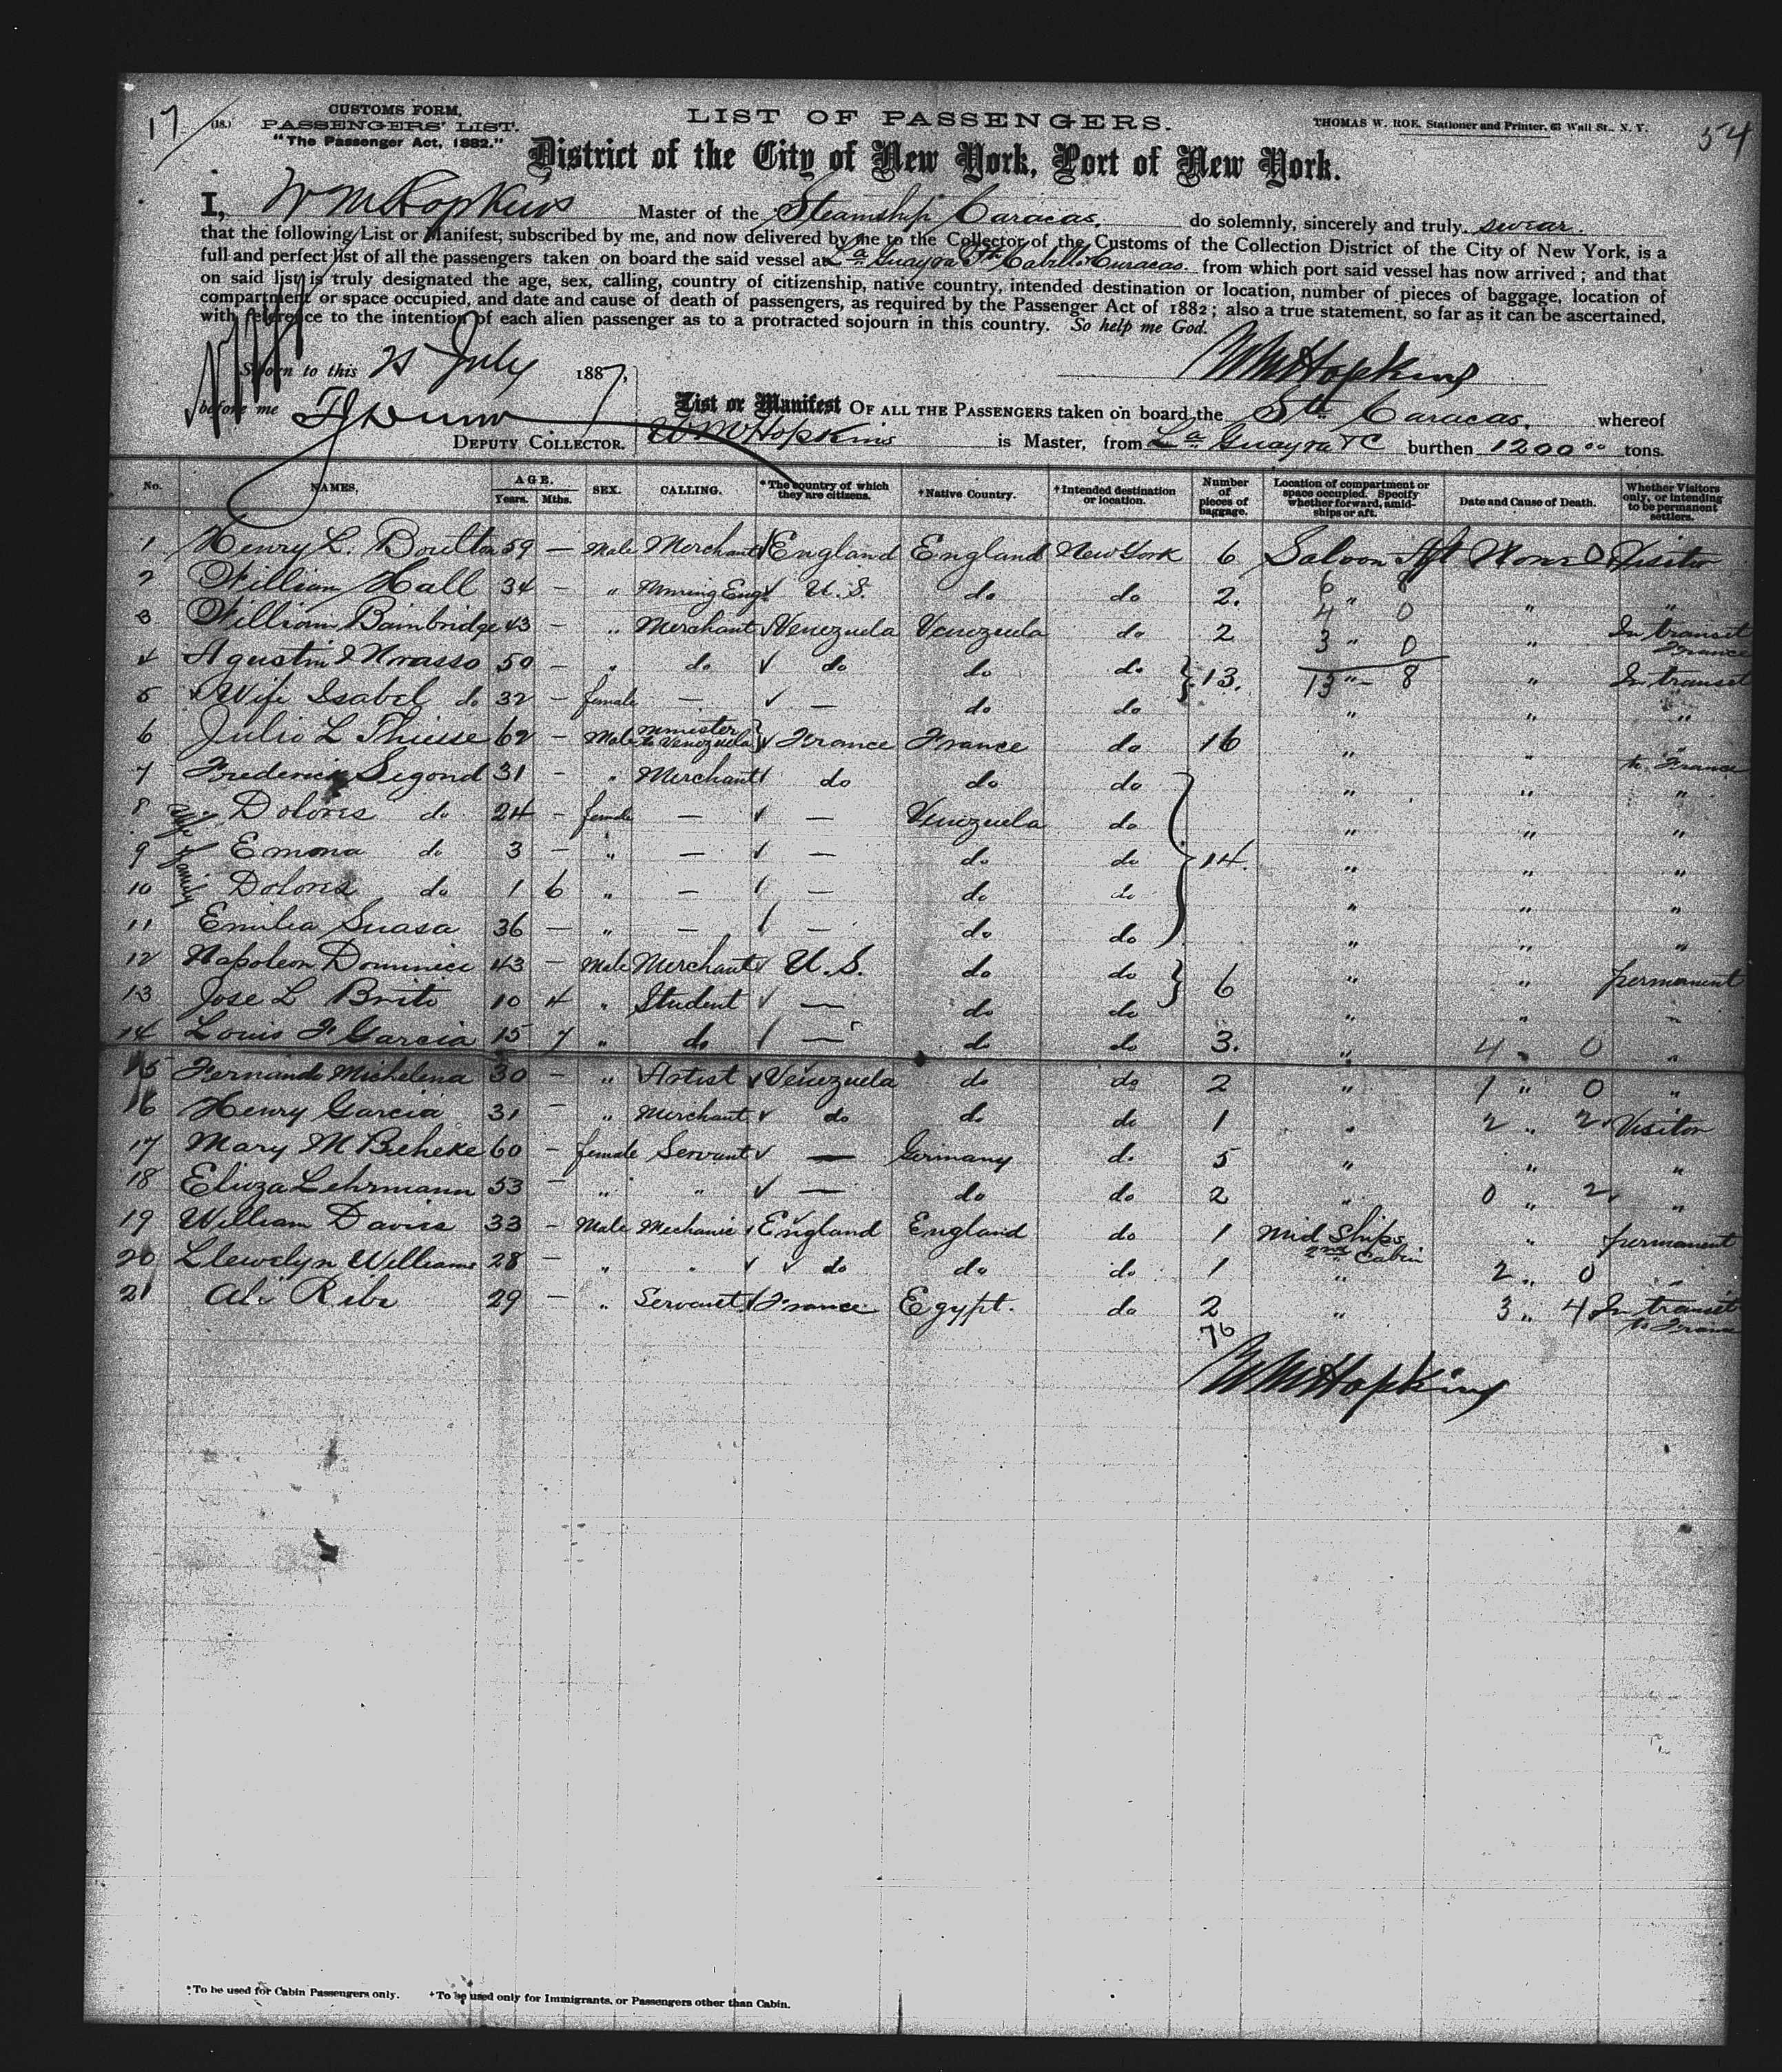 17
(18.)
CUSTOMS FORM,
PASSENGERS' LIST.
"The Passenger Act, 1882."
LIST OF PASSENGERS.
THOMAS W. ROE, Stationer and Printer, 63 Wall St., N. Y.
54
District of the City of New York, Port of New York.
I, W M Hopkins Master of the Steamship Caracas, do solemnly, sincerely and truly swear
that the following List or Manifest, subscribed by me, and now delivered by me to the Collector of the Customs of the Collection District of the City of New York, is a
full and perfect list of all the passengers taken on board the said vessel at La Guayra Pto Cabello Curacao from which port said vessel has now arrived; and that
on said list is truly designated the age, sex, calling, country of citizenship, native country, intended destination or location, number of pieces of baggage, location of
compartment or space occupied, and date and cause of death of passengers, as required by the Passenger Act of 1882; also a true statement, so far as it can be ascertained,
with reference to the intention of each alien passenger as to a protracted sojourn in this country. So help me God.
Sworn to this 21 July 1887,
W M Hopkins
before me
DEPUTY COLLECTOR.
List or Manifest OF ALL THE PASSENGERS taken on board the Str Caracas, whereof
W M Hopkins is Master, from La Guayra &C burthen 1200 00 tons.
No. NAMES, AGE. Years. Mths. SEX. CALLING. *The country of which they are citizens. †Native Country. †Intended destination or location. Number of pieces of baggage. Location of compartment or space occupied. Specify whether forward, amidships or aft. Date and Cause of Death. Whether Visitors only, or intending to be permanent settlers.
1 Henry L. Boulton 59 — Male Merchant England England New York 6 Saloon Aft None Visitor
2 William Hall 34 — " Mining Engr U.S. do do 2. " " "
6 8
3 William Bainbridge 43 — " Merchant Venezuela Venezuela do 2 " " In transit France
4 0
4 Agustin 50 — " do do do do 13. " " In transit
3 0
13 — 8
5 & Wife Isabel do 32 — female — — do do " " "
6 Julio L Thiesse 62 — Male Minister to Venezuela France France do 16 " " " to France
7 Frederick Segond 31 — " Merchant do do do " " "
8 Wife & Family Dolores do 24 — female — — Venezuela do " " "
9 Emma do 3 — " — — do do 14. " " "
10 Dolores do 1 6 " — — do do " " "
11 Emilia Suasa 36 — " — — do do " " "
12 Napoleon Dominici 43 — Male Merchant U.S. do do 6 " " permanent
13 Jose L Brito 10 4 " Student — do do " " "
14 Louis F Garcia 15 7 " do — do do 3. " 4 " 0 "
15 Fernando Michelena 30 — " Artist Venezuela do do 2 " 1 " 0 "
16 Henry Garcia 31 — " Merchant do do do 1 " 2 " 2 Visitor
17 Mary M Beheke 60 — female Servant — Germany do 5 " " "
18 Eliza Lehrmann 53 — " " — do do 2 " 0 " 2 "
19 William Davies 33 — Male Mechanic England England do 1 Mid Ships 2nd Cabin " permanent
20 Llewelyn Williams 28 — " " do do do 1 " 2 " 0 "
21 Ali Ribi 29 — " Servant France Egypt. do 2 " 3 " 4 In transit to France
76
W M Hopkins
*To be used for Cabin Passengers only. †To be used only for Immigrants, or Passengers other than Cabin.